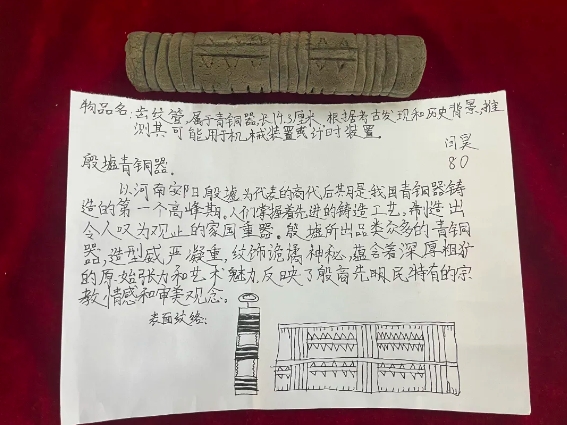 物品名:齿纹管,属于青铜器,长17.5厘米,根据考古发现和历史背景,推
测其可能用于机械装置或计时装置.
闫昊
80
殷墟青铜器.
以河南安阳殷墟为代表的商代后期是我国青铜器铸
造的第一个高峰期。人们掌握着先进的铸造工艺,制造出
令人叹为观止的家国重器。殷墟所出品类众多的青铜
器,造型威严凝重,纹饰诡谲神秘,蕴含着深厚粗犷
的原始张力和艺术魅力,反映了殷商先民特有的宗
教情感和审美观念。
表面纹络: